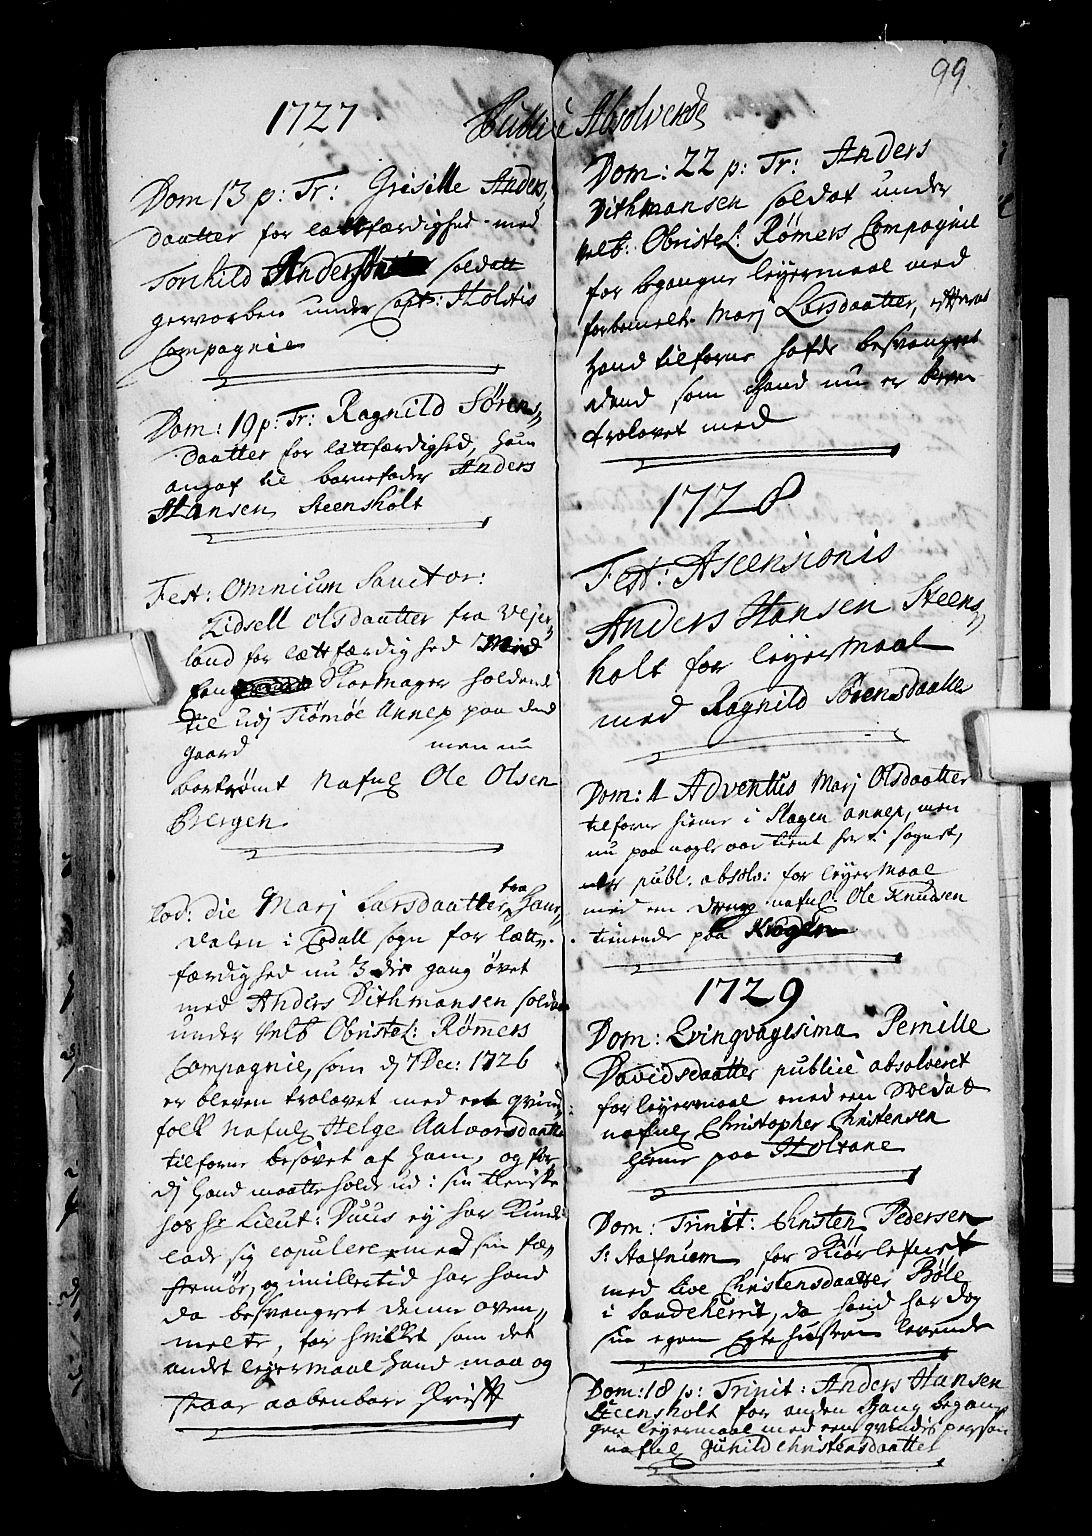 1727
Publicè
Dom 13 p: Tr: Grisille Anders,
daatter for lættfærdighed med
Torkild Andersøn soldatt
gevorben under Capt: Holstis
Compagnie
Dom: 19 p: Tr: Ragnild Sørens,
daatter for lættfærdighed, hun
angaf til barnefader Anders
Hansen Steensholt
Fest: Omnium Sanctor:
Lidsell Olsdaatter fra Vejer,
land for lættfærdighed Med
een Skoemager holdende
til udj Tiømøe Annex paa
gaard men nu
bortrømt nafnl Ole Olsen
Bergen
Eod: die Marj Larsdaatter fra Haur,
dalen i sogn for lætt,
færdighed nu 3die gang øvet
med Anders Dithmansen soldat
under Velb Obristel: Rømers
Compagnie, som d 7 Dec: 1726
er bleven trolovet med eet qvind,
folk nafnl Helge Aalvorsdaatter
tilforne besovet af ham, og for
dj hand maatte holde ud i sin tieniste
hos hr Lieut: Duus ej har kund
lade sig copulere med sin fæ,
stemøe, og imillertid har hand
da besvangret denne oven,
melte, for hvilket som det
andet leyermaal hand maa og
staae aabenbare Skrift
99
Absolverede
Dom: 22 p: Tr: Anders
Dithmansen soldat under
velb: Obristel: Rømers Compagnie
for begangne leyermaal med
forbemelte Marj Larsdaatter, efterat
hand tilforne hafde besvangret
dend som hand nu er
trolovet med
1728
Fest: Ascensionis
Anders Hansen Steens,
holt for leyermaal
med Ragnild Sørensdaatter
Dom: 4 Adventus Marj Olsdaatter
tilforne hieme i Slagen annex, men
nu paa nogle aar tient her i sognet,
publ. absolv: for leyermaal
med en dreng nafnl. Ole Knudsen
tienende paa Krogen
1729
Dom: Qvinqvagesima Pernille
Davidsdaatter publicè absolveret
for leyermaal med een Soldat
nafnl Christopher Christensen
hieme paa Holtane
Dom: Trinit: Christen Pedersen
for Hoorlefnet
med Live Christensdaatter Bøle
i Sandeherrit, da hand har dog
sin egen Egtehustrue levende
Dom: 18 p: Trinit: Anders Hansen
Steensholt for anden Gang begang,
gen leyermaal med een qvindis person
nafnl Guhild Christensdaatter